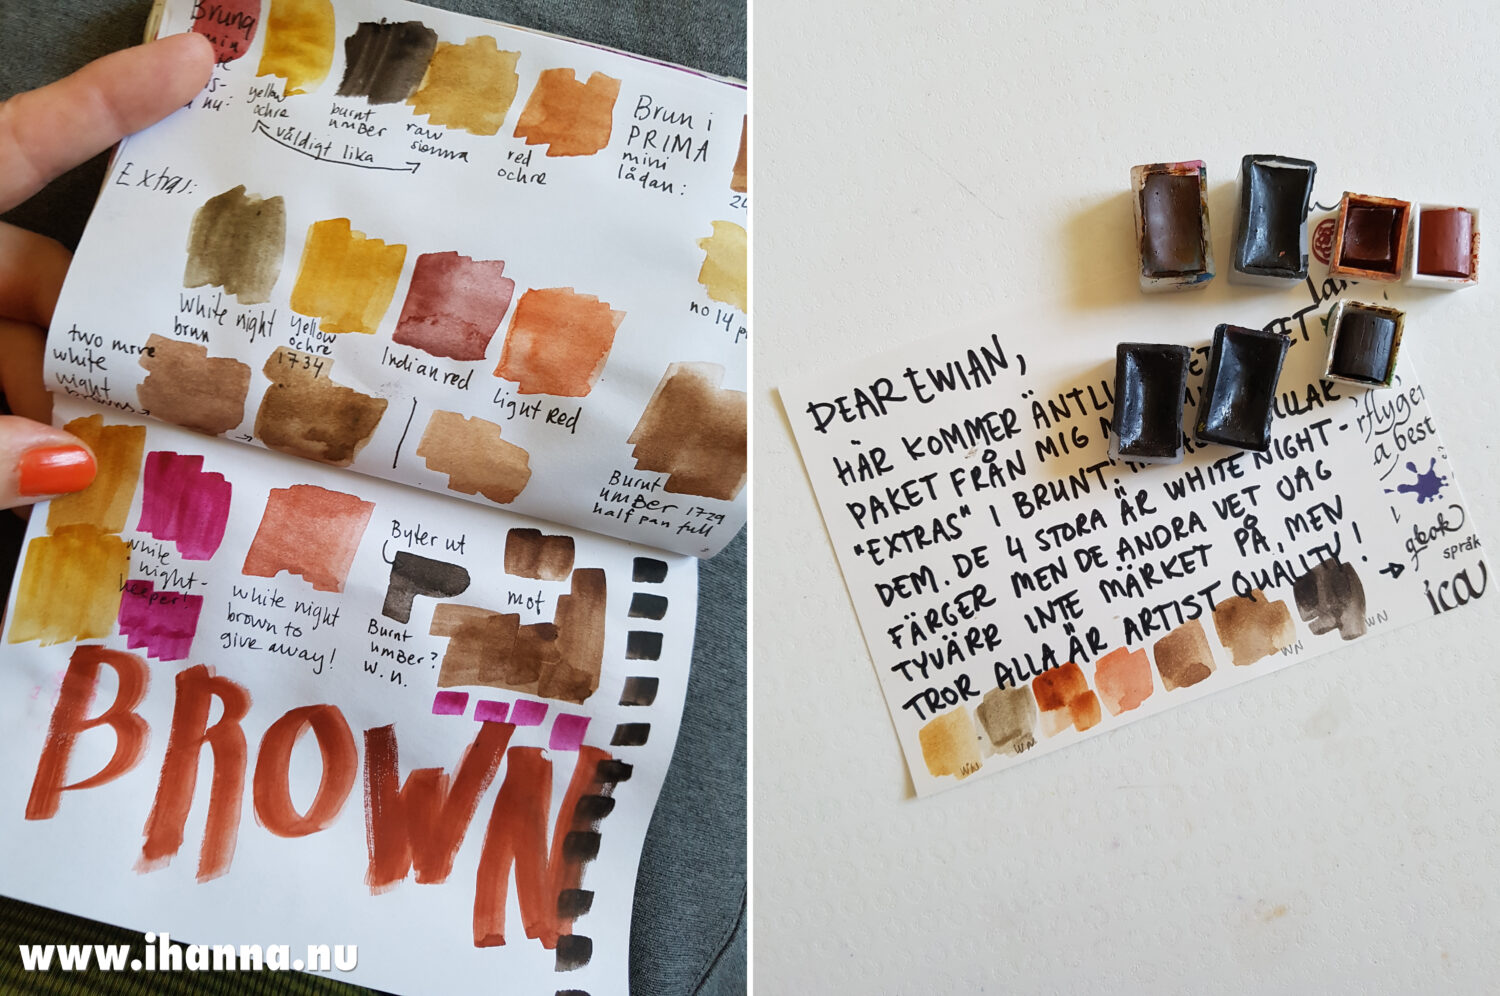 Bruna
i min
nu:
yellow
ochre
burnt
umber
raw
sienna
red
ochre
väldigt lika
Brun i
PRIMA
mini
lådan:
24
Extras:
White night
brun
yellow
ochre
1734
Indian red
light Red
no 14
two more
white
night
browns
Burnt
umber 1729
half pan full
white
night-
keeper!
white night
brown to
give away!
Byter ut
Burnt
umber?
W.N.
mot
BROWN
www.ihanna.nu
DEAR EWIAN,
HÄR KOMMER ÄNTLI
PAKET FRÅN MIG
"EXTRAS" I BRUNT!
DEM. DE 4 STORA ÄR WHITE NIGHT-
FÄRGER MEN DE ANDRA VET JAG
TYVÄRR INTE MÄRKET PÅ, MEN
TROR ALLA ÄR ARTIST QUALITY!
WN
WN
WN
WN
a best
språk
ica